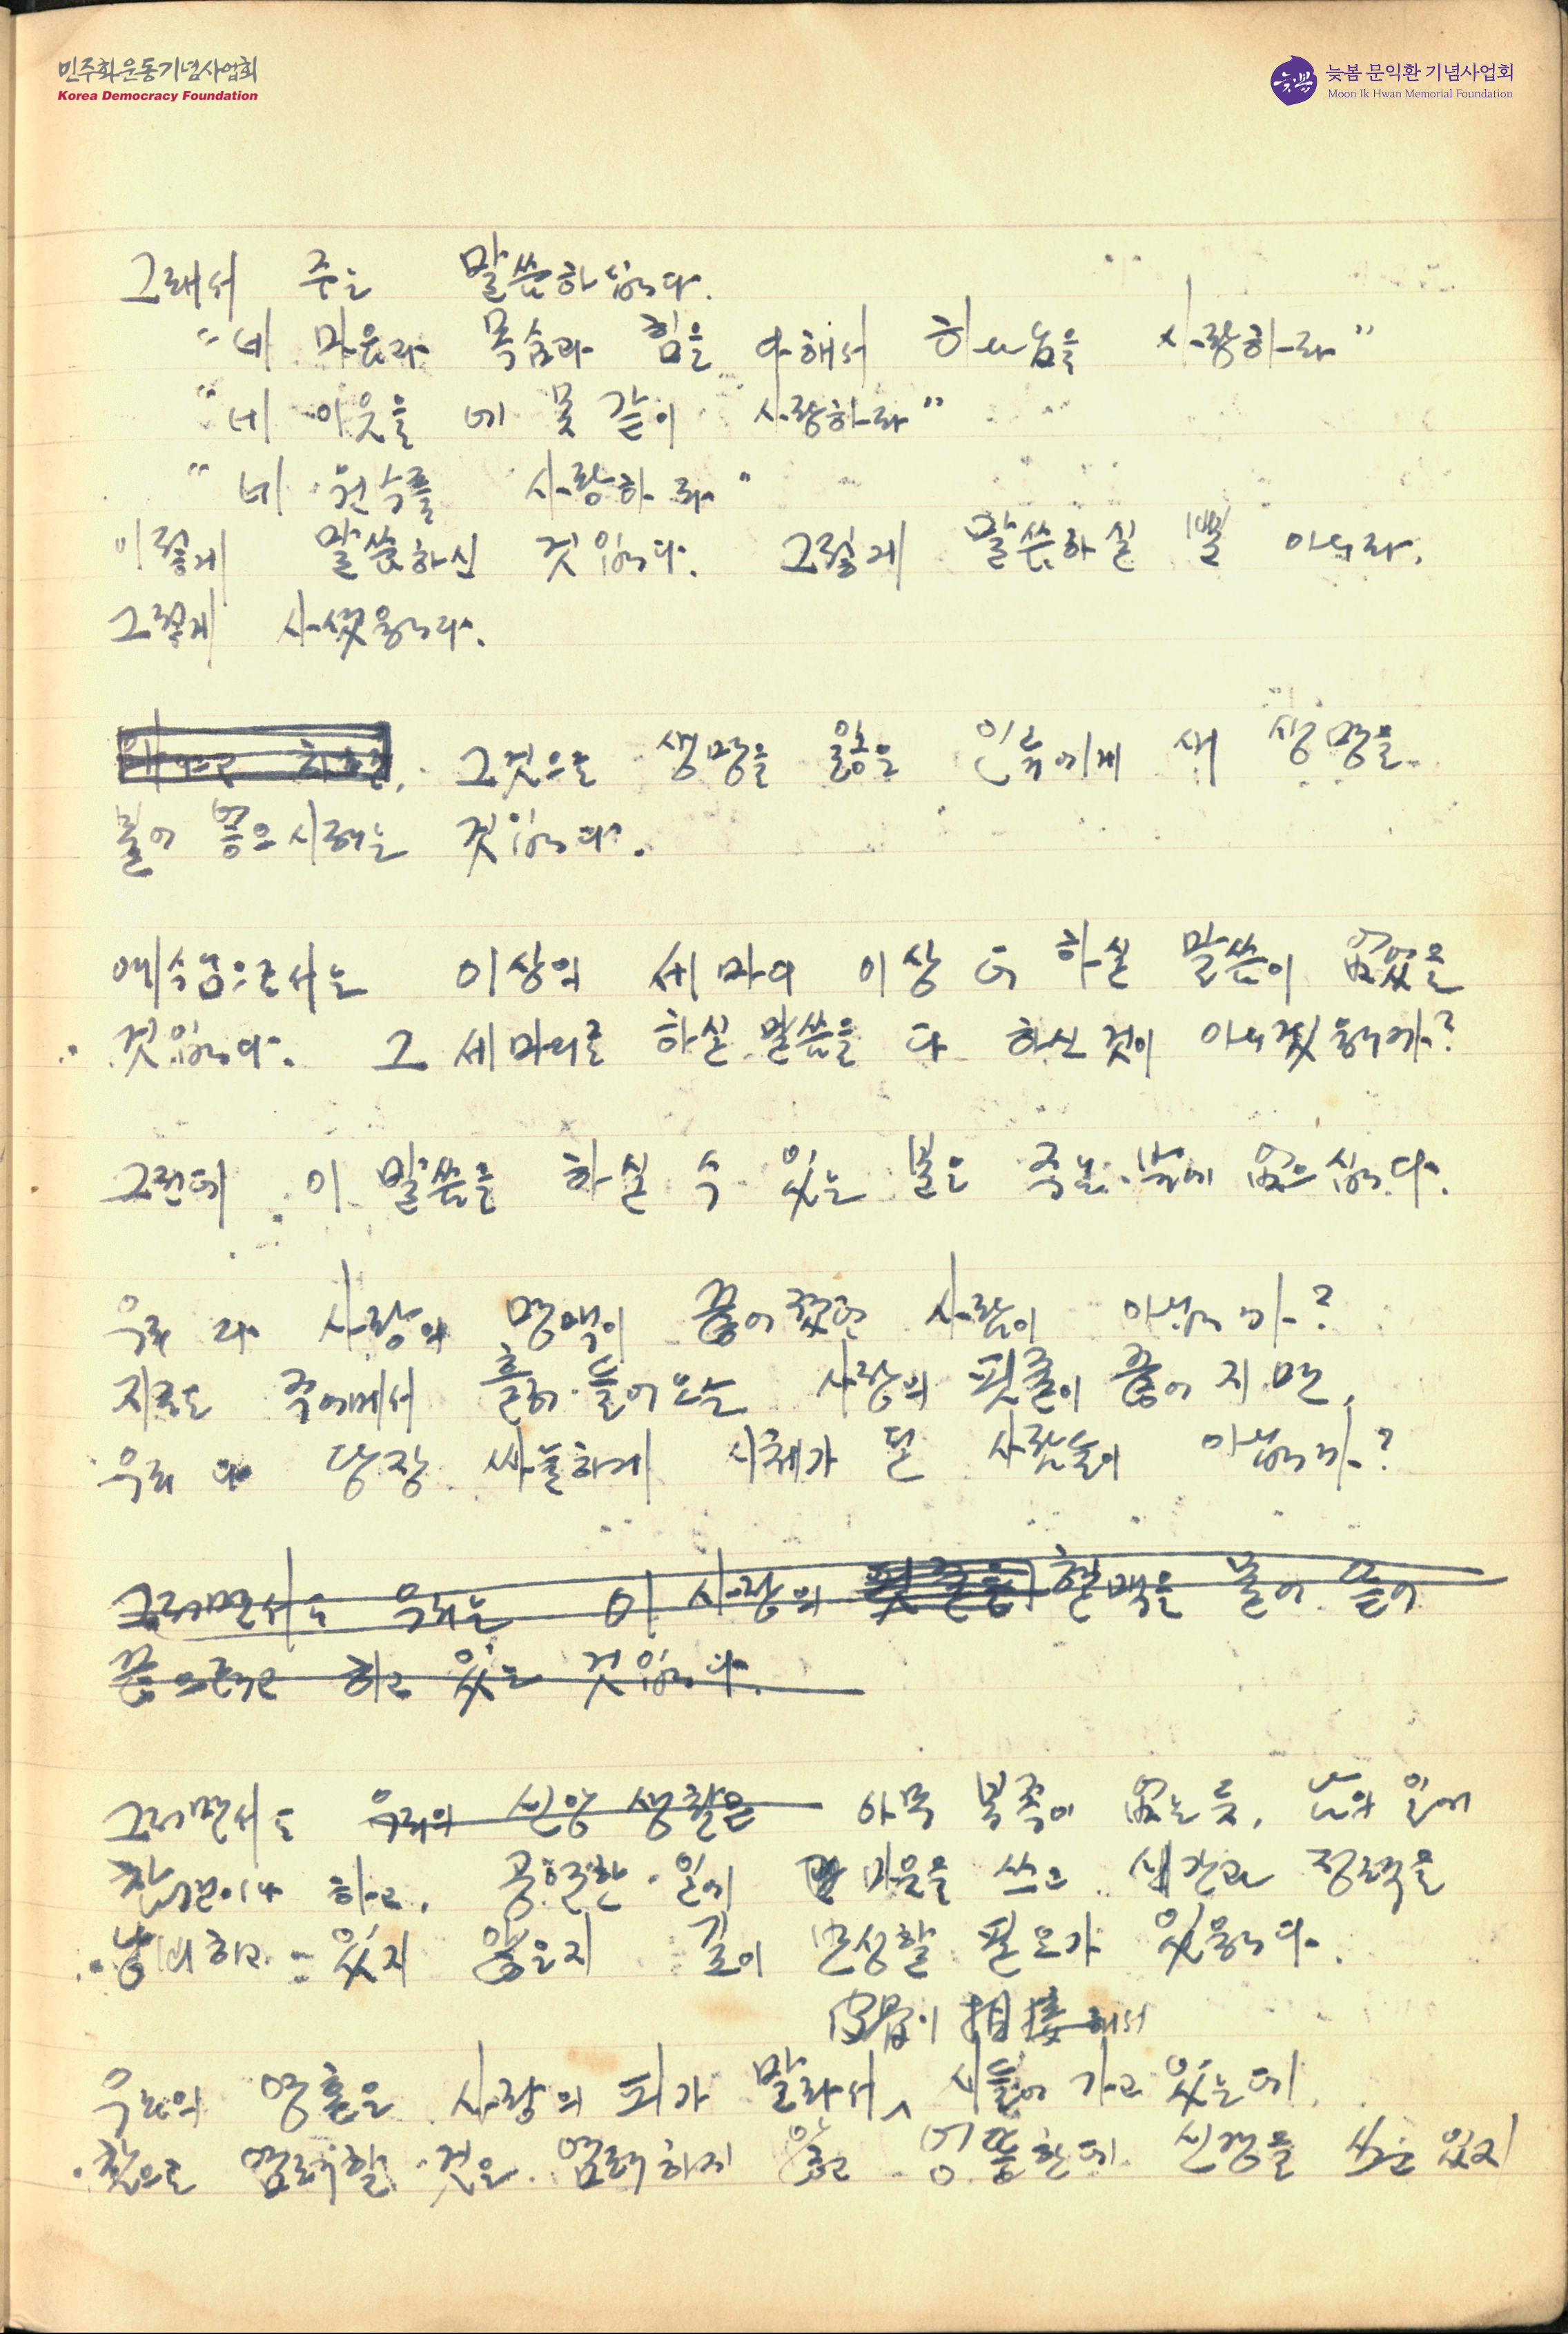 민주화운동기념사업회
Korea Democracy Foundation
늦봄 문익환 기념사업회
Moon Ik Hwan Memorial Foundation
그래서 주는 말씀하십니다.
"네 마음과 목숨과 힘을 다해서 하나님을 사랑하라"
"네 이웃을 네 몸 같이 사랑하라"
"네 원수를 사랑하라"
이렇게 말씀하신 것입니다. 그렇게 말씀하실 뿐 아니라,
그렇게 사셨읍니다.
그것으로 생명을 잃은 인류에게 새 생명을
불어 넣으시려는 것입니다.
예수님으로서는 이상의 세 마디 이상 더 하실 말씀이 없었을
것입니다. 그 세 마디로 하실 말씀을 다 하신 것이 아니겠읍니까?
그런데 이 말씀을 하실 수 있는 분은 주님 밖에 없으십니다.
우리 다 사랑의 맥이 끊어졌던 사람이 아닙니까?
지금도 주에게서 흘러 들어오는 사랑의 핏줄이 끊어지면,
우리 다 당장 싸늘하게 시체가 될 사람들이 아닙니까?
그러면서도 우리는 이 사랑의 핏줄을 혈맥을 물어 뜯어
끊으려고 하고 있는 것입니다.
그러면서도 우리의 신앙 생활은 아무 부족이 없는 듯, 남의 일에
참견이나 하고, 공연한 일에 마음을 쓰고 시간과 정력을
낭비하고 있지 않은지 깊이 반성할 필요가 있읍니다.
皮骨이 相接해서
우리의 영혼은 사랑의 피가 말라서 시들어 가고 있는데,
참으로 염려할 것은 염려하지 않고 엉뚱한데 신경을 쓰고 있지